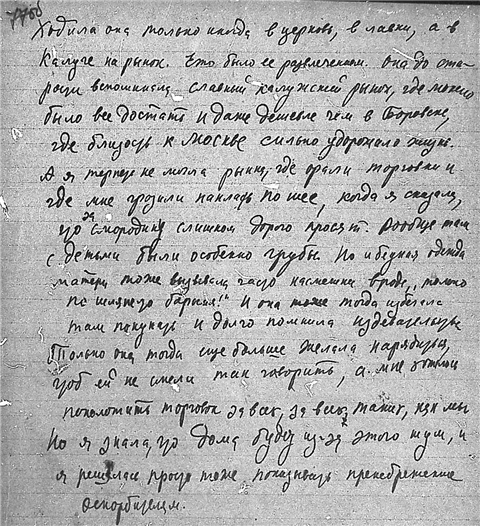 77об
Ходила она только иногда в церковь, в лавки, а в
Калуге на рынок. Это было ее развлечением. Она до ста-
рости вспоминала славный калужский рынок, где можно
было все достать и даже дешевле чем в Боровске,
где близость к Москве сильно удорожала жизнь.
А я терпеть не могла рынка, где орали торговки и
где мне грозили накласть по шее, когда я сказала,
что за смородину слишком дорого просят. Вообще там
с детьми были особенно грубы. Но и бедная одежда
матери тоже вызывала часто насмешки вроде „только
по шляпе-то барыня!" И она тоже тогда избегала
там покупать и долго помнила издевательство
Только она тогда еще больше желала нарядиться,
чтоб ей не смели так говорить, а мне хотелось
поколотить торговок за всех, за всех таких, как мы
Но я знала, что дома будет из-за этого шум, и
я решилась просто тоже показывать пренебрежение
оскорбителям.